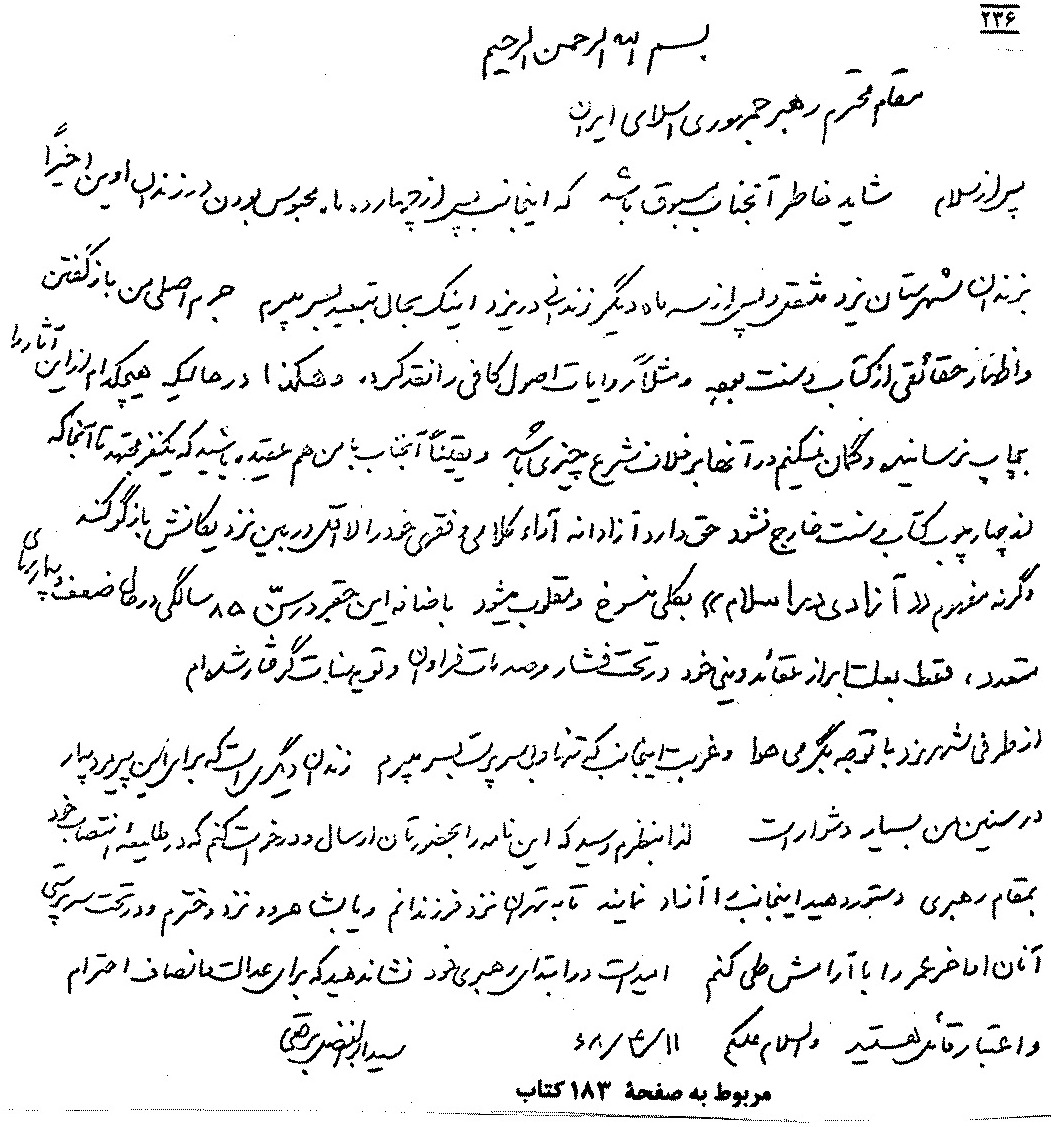 ۲۳۶
بسم الله الرحمن الرحیم
مقام محترم رهبر جمهوری اسلامی ایران
پس از سلام شاید خاطر آنجناب مسبوق باشد که اینجانب پس از چهارده ماه محبوس بودن در زندان اوین اخیراً
بزندان شهرستان یزد منتقل و پس از سه ماه دیگر زندانی در یزد اینک بحال تبعید بسر میبرم جرم اصلی من بازگفتن
و اظهار حقائقی از کتاب و سنت بوده و مثلاً روایات اصول کافی را نقد کرده و هکذا در حالیکه هیچکدام از این آثار را
بچاپ نرسانیده و گمان نمیکنم در آنها بر خلاف شرع چیزی باشد و یقیناً آنجناب با من هم عقیده باشید که یکنفر مجتهد تا آنجا که
از چارچوب کتاب و سنت خارج نشود حق دارد آزادانه آراء کلامی و فقهی خود را لااقل در بین نزدیکانش بازگو کند
وگرنه مفهوم «آزادی در اسلام» بکلی منسوخ و مقلوب میشود باضافه این حقیر در سنّ ۸۵ سالگی در حال ضعف و بیماریهای
متعدد، فقط بعلت ابراز عقائد دینی خود در تحت فشار و صدمات فراوان و توهینات گرفتار شده‌ام
از طرفی شهر یزد با توجه بگرمی هوا و غربت اینجانب که تنها و بی سرپرست بسر میبرم زندان دیگری است که برای این پیرمرد بیمار
در سنین من بسیار دشوار است لذا بنظرم رسید که این نامه را بحضورتان ارسال و درخواست کنم که در طلیعه انتصاب خود
بمقام رهبری دستور دهید اینجانب را آزاد نمایند تا به تهران نزد فرزندانم و یا بشاهرود نزد دخترم و در تحت سرپرستی
آنان اواخر عمر را با آرامش طی کنم امید است در ابتدای رهبری خود نشان دهید که برای عدالت و انصاف احترام
و اعتبار قائل هستید والسلام علیکم ۶۸/۴/۱۱ سید ابوالفضل برقعی
مربوط به صفحهٔ ۱۸۳ کتاب